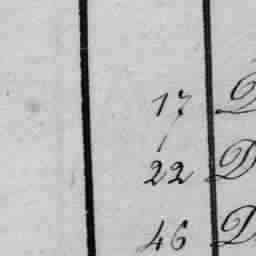 17 D
22 D
46 D